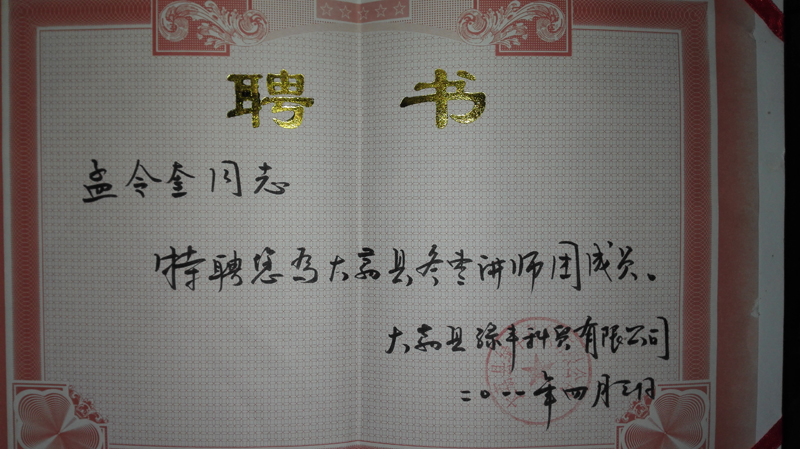 聘 书
孟令奎同志
特聘您为大荔县冬枣讲师团成员。
大荔县绿丰科贸有限公司
二〇一一年四月三日